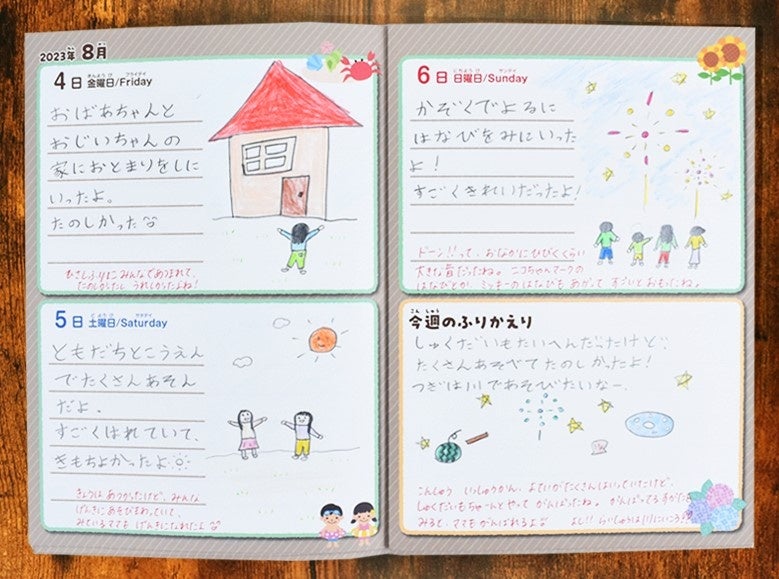 2023年 8月
4日 金曜日/Friday
おばあちゃんと
おじいちゃんの
家におとまりをしに
いったよ。
たのしかった
ひさしぶりにみんなであつまれて、
たのしかったし うれしかったよね!
5日 土曜日/Saturday
ともだちとこうえん
でたくさんあそん
だよ。
すごくはれていて、
きもちよかったよ
きょうは あつかったけど、みんな
げんきにあそびまわっていて、
みているママも げんきになれたよ
6日 日曜日/Sunday
かぞくでよるに
はなびをみにいった
よ!
すごくきれいだったよ!
ドーン!!って、おなかにひびくくらい
大きな音だったね。ニコちゃんマークの
はなびとか、ミッキーのはなびも あがって すごいとおもったね。
今週のふりかえり
しゅくだいもたいへんだったけど
たくさんあそべて たのしかったよ!
つぎは川であそびたいなー。
こんしゅう いっしゅうかん、よていがたくさんはいっていたけど、
しゅくだいもちゃーんとやって がんばったね。がんばってるすがた
みると、ママもがんばれるよ
よし!! らいしゅうは川にいこう!